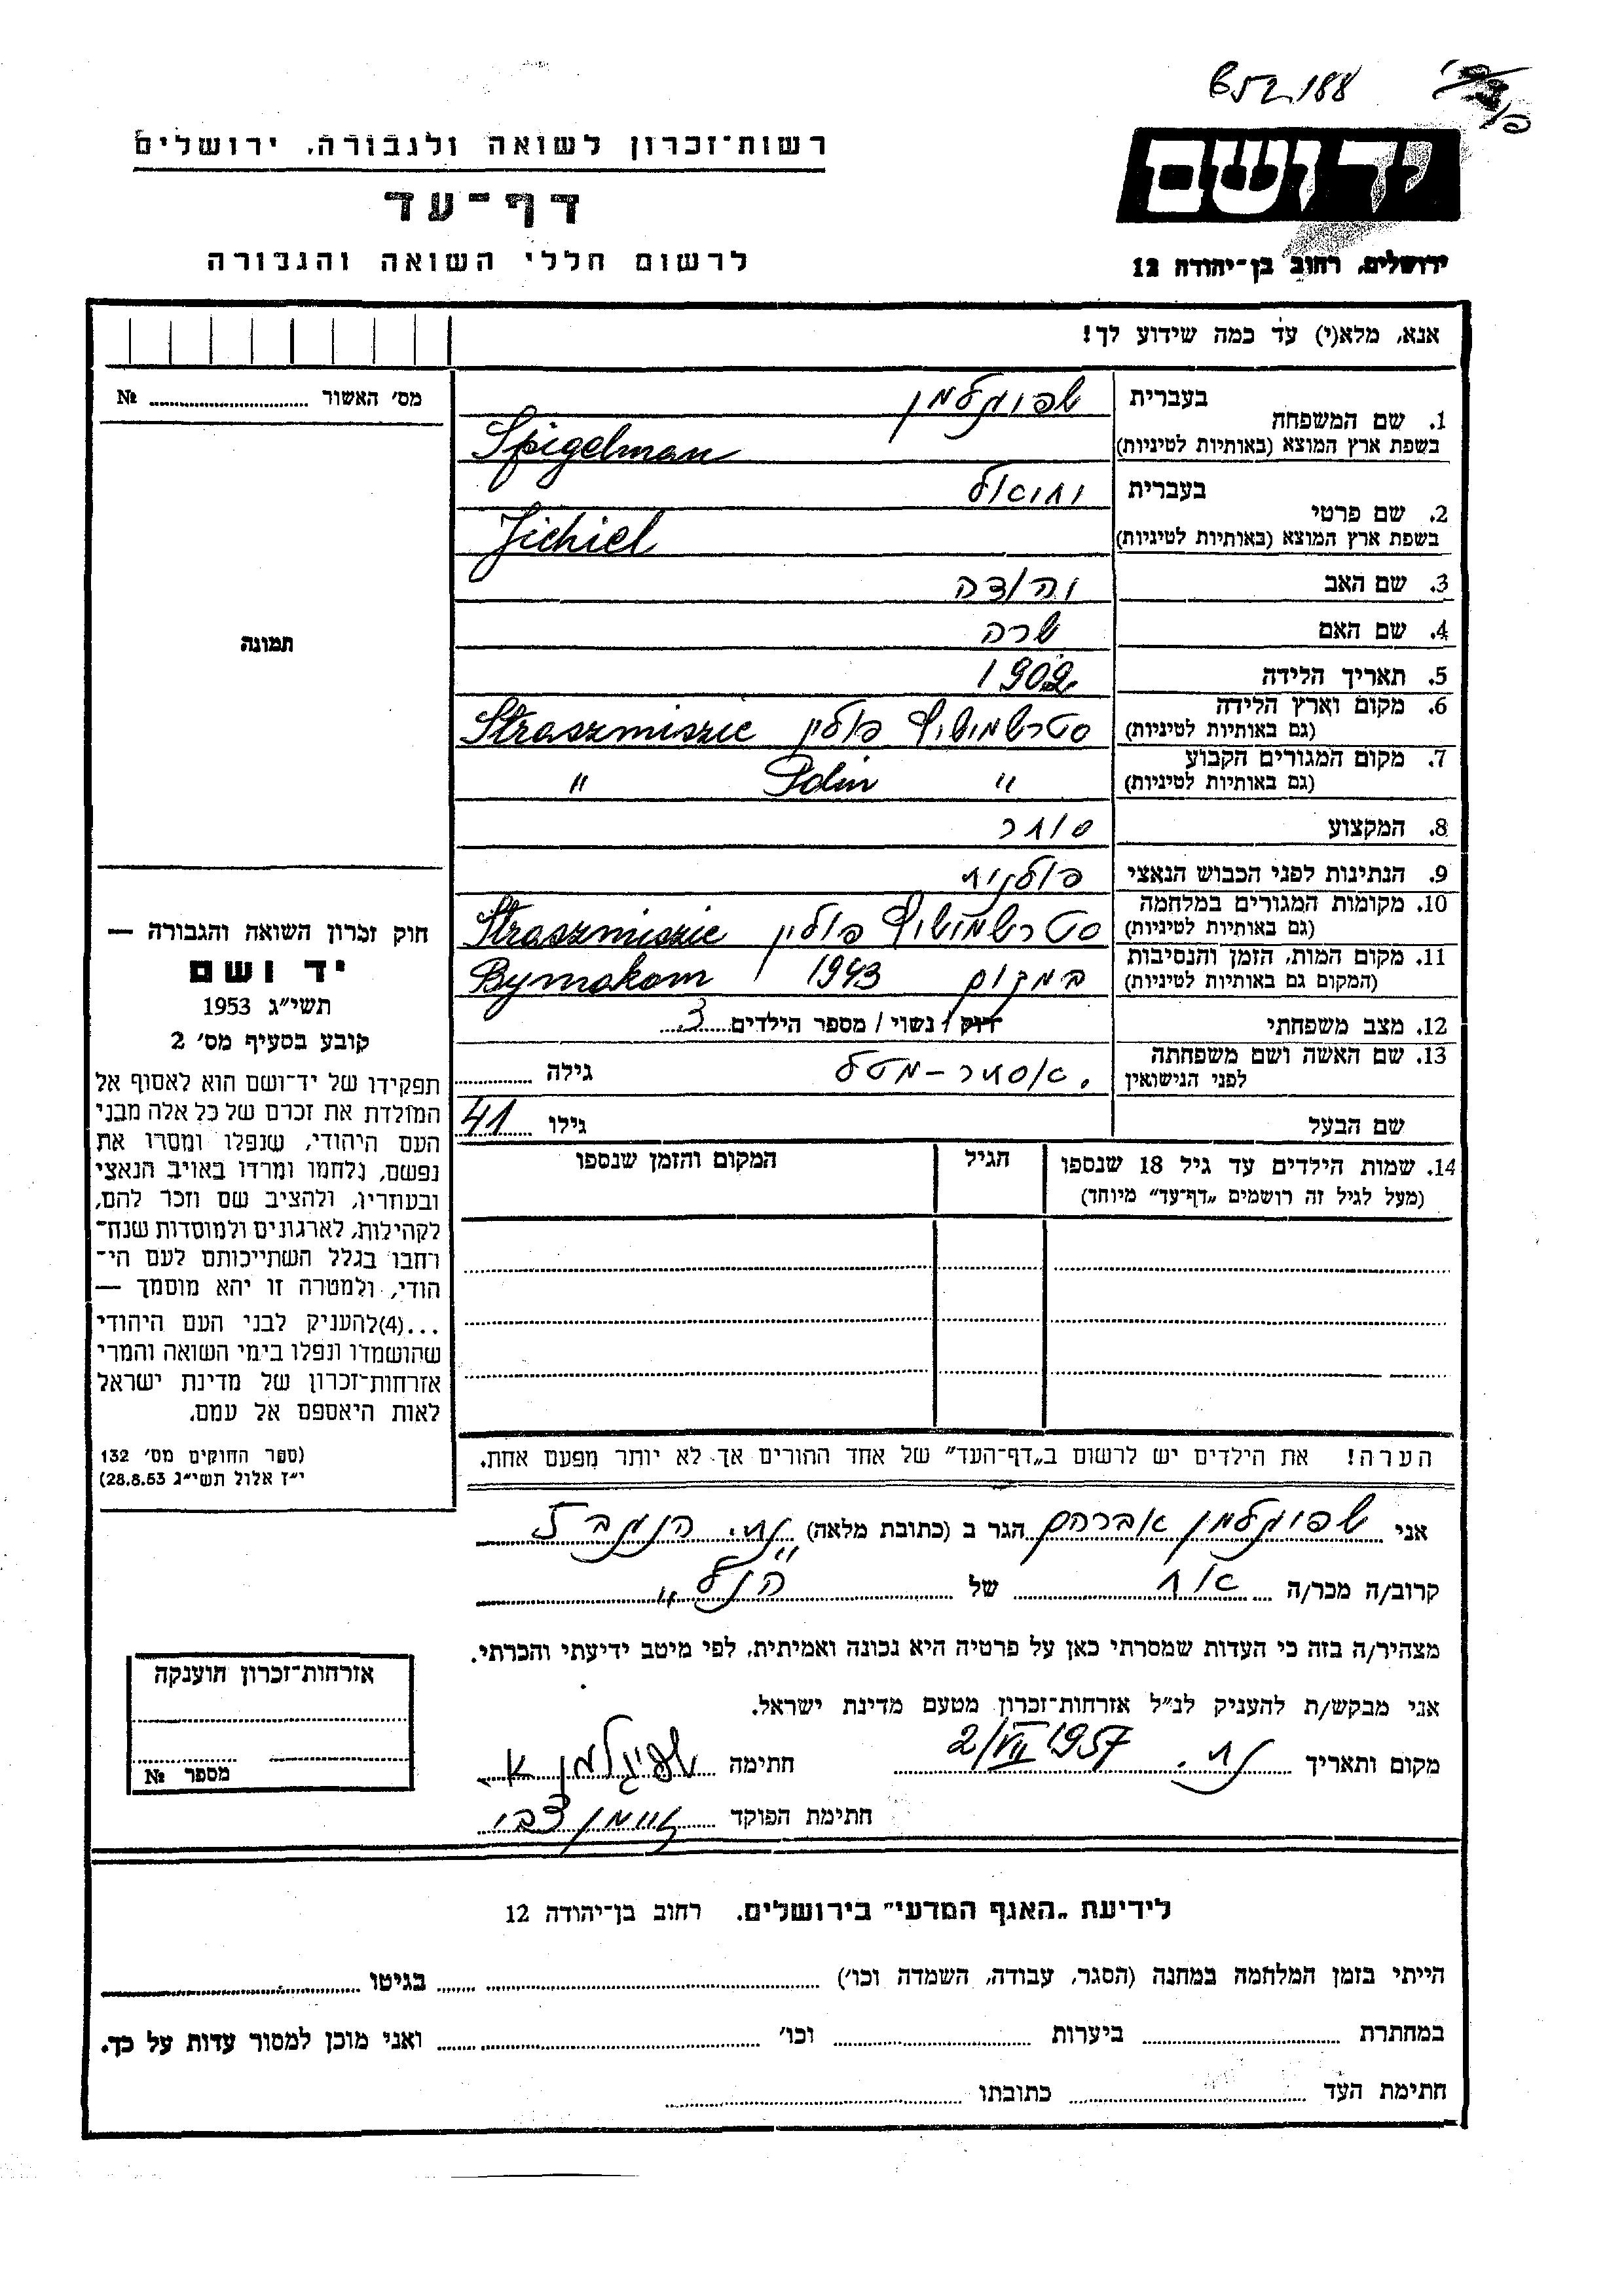 652188
רשות־זכרון לשואה ולגבורה, ירושלים
דף־עד
לרשום חללי השואה והגבורה
יד ושם
ירושלים, רחוב בן־יהודה 12
אנא, מלא(י) עד כמה שידוע לך!
מס' האשור № ....................
תמונה
חוק זכרון השואה והגבורה —
יד ושם
תשי"ג 1953
קובע בסעיף מס' 2
תפקידו של יד־ושם הוא לאסוף אל
המולדת את זכרם של כל אלה מבני
העם היהודי, שנפלו ומסרו את
נפשם, נלחמו ומרדו באויב הנאצי
ובעוזריו, ולהציב שם וזכר להם,
לקהילות, לארגונים ולמוסדות שנח־
רחבו בגלל השתייכותם לעם הי־
הודי, ולמטרה זו יהא מוסמך —
...(4)להעניק לבני העם היהודי
שהושמדו ונפלו בימי השואה והמרי
אזרחות־זכרון של מדינת ישראל
לאות היאספם אל עמם.
(ספר החוקים מס' 132
י"ז אלול תשי"ג 28.8.53)
1. שם המשפחה בעברית שפיגלמן
בשפת ארץ המוצא (באותיות לטיניות) Spigelman
2. שם פרטי בעברית יחיאל
בשפת ארץ המוצא (באותיות לטיניות) Jichiel
3. שם האב יהודה
4. שם האם שרה
5. תאריך הלידה 1902
6. מקום וארץ הלידה (גם באותיות לטיניות) פולין Straszmiszie
7. מקום המגורים הקבוע (גם באותיות לטיניות) " Polin "
8. המקצוע סוחר
9. הנתינות לפני הכבוש הנאצי פולנית
10. מקומות המגורים במלחמה (גם באותיות לטיניות) פולין Straszmiszie
11. מקום המות, הזמן והנסיבות (המקום גם באותיות לטיניות) במקום 1943 Bymakom
12. מצב משפחתי רווק / נשוי / מספר הילדים 3
13. שם האשה ושם משפחתה לפני הנישואין אסתר-מטל גילה ..........
שם הבעל גילו 41
14. שמות הילדים עד גיל 18 שנספו הגיל המקום והזמן שנספו
(מעל לגיל זה רושמים „דף־עד" מיוחד)
הערה! את הילדים יש לרשום ב„דף־העד" של אחד ההורים אך לא יותר מפעם אחת.
אני שפיגלמן אברהם הגר ב (כתובת מלאה)
קרוב/ה מכר/ה אח של הנ"ל
מצהיר/ה בזה כי העדות שמסרתי כאן על פרטיה היא נכונה ואמיתית, לפי מיטב ידיעתי והכרתי.
אני מבקש/ת להעניק לנ"ל אזרחות־זכרון מטעם מדינת ישראל.
מקום ותאריך 2/VII 1957 חתימה שפיגלמן א.
חתימת הפוקד
אזרחות־זכרון הוענקה
מספר №
לידיעת „האגף המדעי" בירושלים, רחוב בן־יהודה 12
הייתי בזמן המלחמה במחנה (הסגר, עבודה, השמדה וכו') .................... בגיטו ....................
במחתרת .................... ביערות .................... וכו' .................... ואני מוכן למסור עדות על כך.
חתימת העד .................... כתובתו ....................